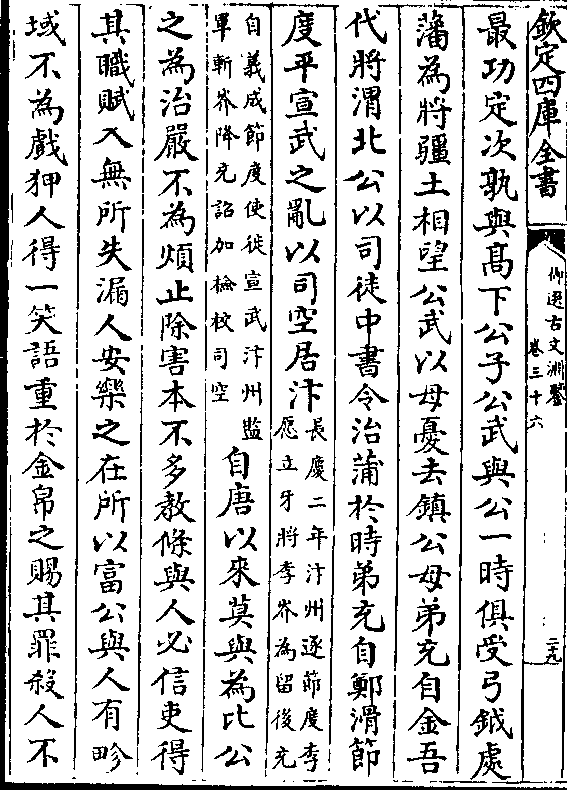 欽定四庫全書
御選古文淵鑒
卷三十六
二十九
最功定次孰與髙下公子公武與公一時俱受弓鉞處
藩為將疆土相望公武以母憂去鎮公母弟充自金吾
代將渭北公以司徒中書令治蒲於時弟充自鄭滑節
度平宣武之亂以司空居汴
長慶二年汴州逐節度李
愿立牙將李㝏為留後充
自義成節度使徙宣武汴州監
軍斬㝏降充詔加檢校司空
自唐以來莫與為比公
之為治嚴不為煩止除害本不多敎條與人必信吏得
其職賦入無所失漏人安樂之在所以富公與人有畛
域不為戲狎人得一笑語重於金帛之賜其罪殺人不